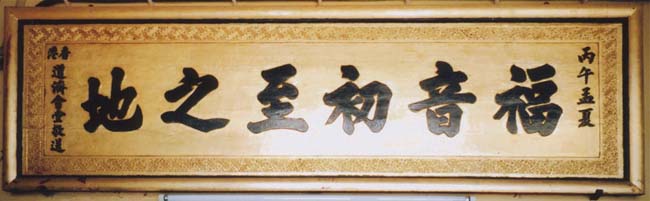 丙午孟夏
福音初至之地
香港
道濟會堂敬送